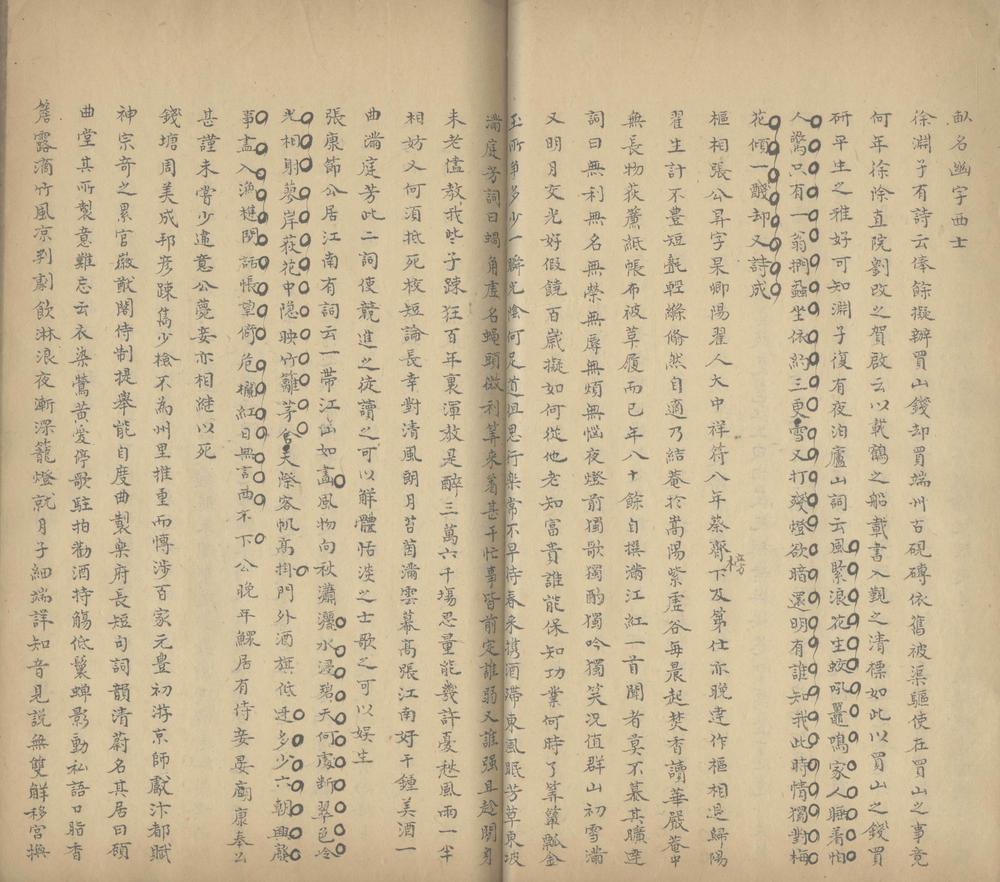 畝名幽字西士
徐淵子有詩云俸餘擬辦買山錢却買端州古硯磚依舊被渠驅使在買山之事竟
何年徐除直院劉改之賀啟云以載鶴之船載書入覲之清標如此以買山之錢買
研平生之雅好可知淵子復有夜泊廬山詞云風緊浪花生蛟吼鼉鳴家人睡著怕
人驚只有一翁捫蝨坐依約三更雪又打殘燈欲暗還明有誰知我此時情獨對梅
花傾一醆却又詩成
樞相張公昇字杲卿陽翟人大中祥符八年蔡齊榜下及第仕亦晚達作樞相退歸陽
翟生計不豊短氈輕絛翛然自適乃結菴於嵩陽紫虛谷每晨起焚香讀華嚴菴中
無長物荻簾紙帳布被草履而已年八十餘自撰滿江紅一首聞者莫不慕其曠達
詞曰無利無名無榮無辱無煩無惱夜燈前獨歌獨酌獨吟獨笑況值群山初雪滿
又明月交光好假饒百歲擬如何從他老知富貴誰能保知功業何時了算簞瓢金
玉所爭多少一瞬光陰何足道但思行樂常不早待春來携酒殢東風眠芳草東坡
滿庭芳詞曰蝸角虛名蠅頭微利算來着甚干忙事皆前定誰弱又誰强且趁閒身
未老儘教我些子踈狂百年裏渾教是醉三萬六千塲思量能幾許憂愁風雨一半
相妨又何須抵死校短論長幸對清風朗月苔茵滿雲幕高張江南好千鍾美酒一
曲滿庭芳此二詞使競進之徒讀之可以解體恬淡之士歌之可以娱生
張康節公居江南有詞云一帶江山如畵風物向秋瀟灑水浸碧天何處斷翠色冷
光相射蓼岸荻花中隱映竹籬茅舍天際客帆高掛門外酒旗低迓多少六朝興廢
事盡入漁樵閒話悵望倚危欄紅日無言西下公晚年鰥居有侍妾晏康奉公
甚謹未嘗少違意公薨妾亦相繼以死
錢塘周美成邦彦踈雋少檢不為州里推重而愽涉百家元豊初游京師獻汴都賦
神宗奇之累官徽猷閣待制提舉能自度曲製樂府長短句詞韻清蔚名其居曰顧
曲堂其所製意難忘云衣染鶯黃愛停歌駐拍勸酒持觴低鬟蟬影動私語口脂香
簷露滴竹風凉判劇飲淋浪夜漸深籠燈就月子細端詳知音見説無雙解移宮換